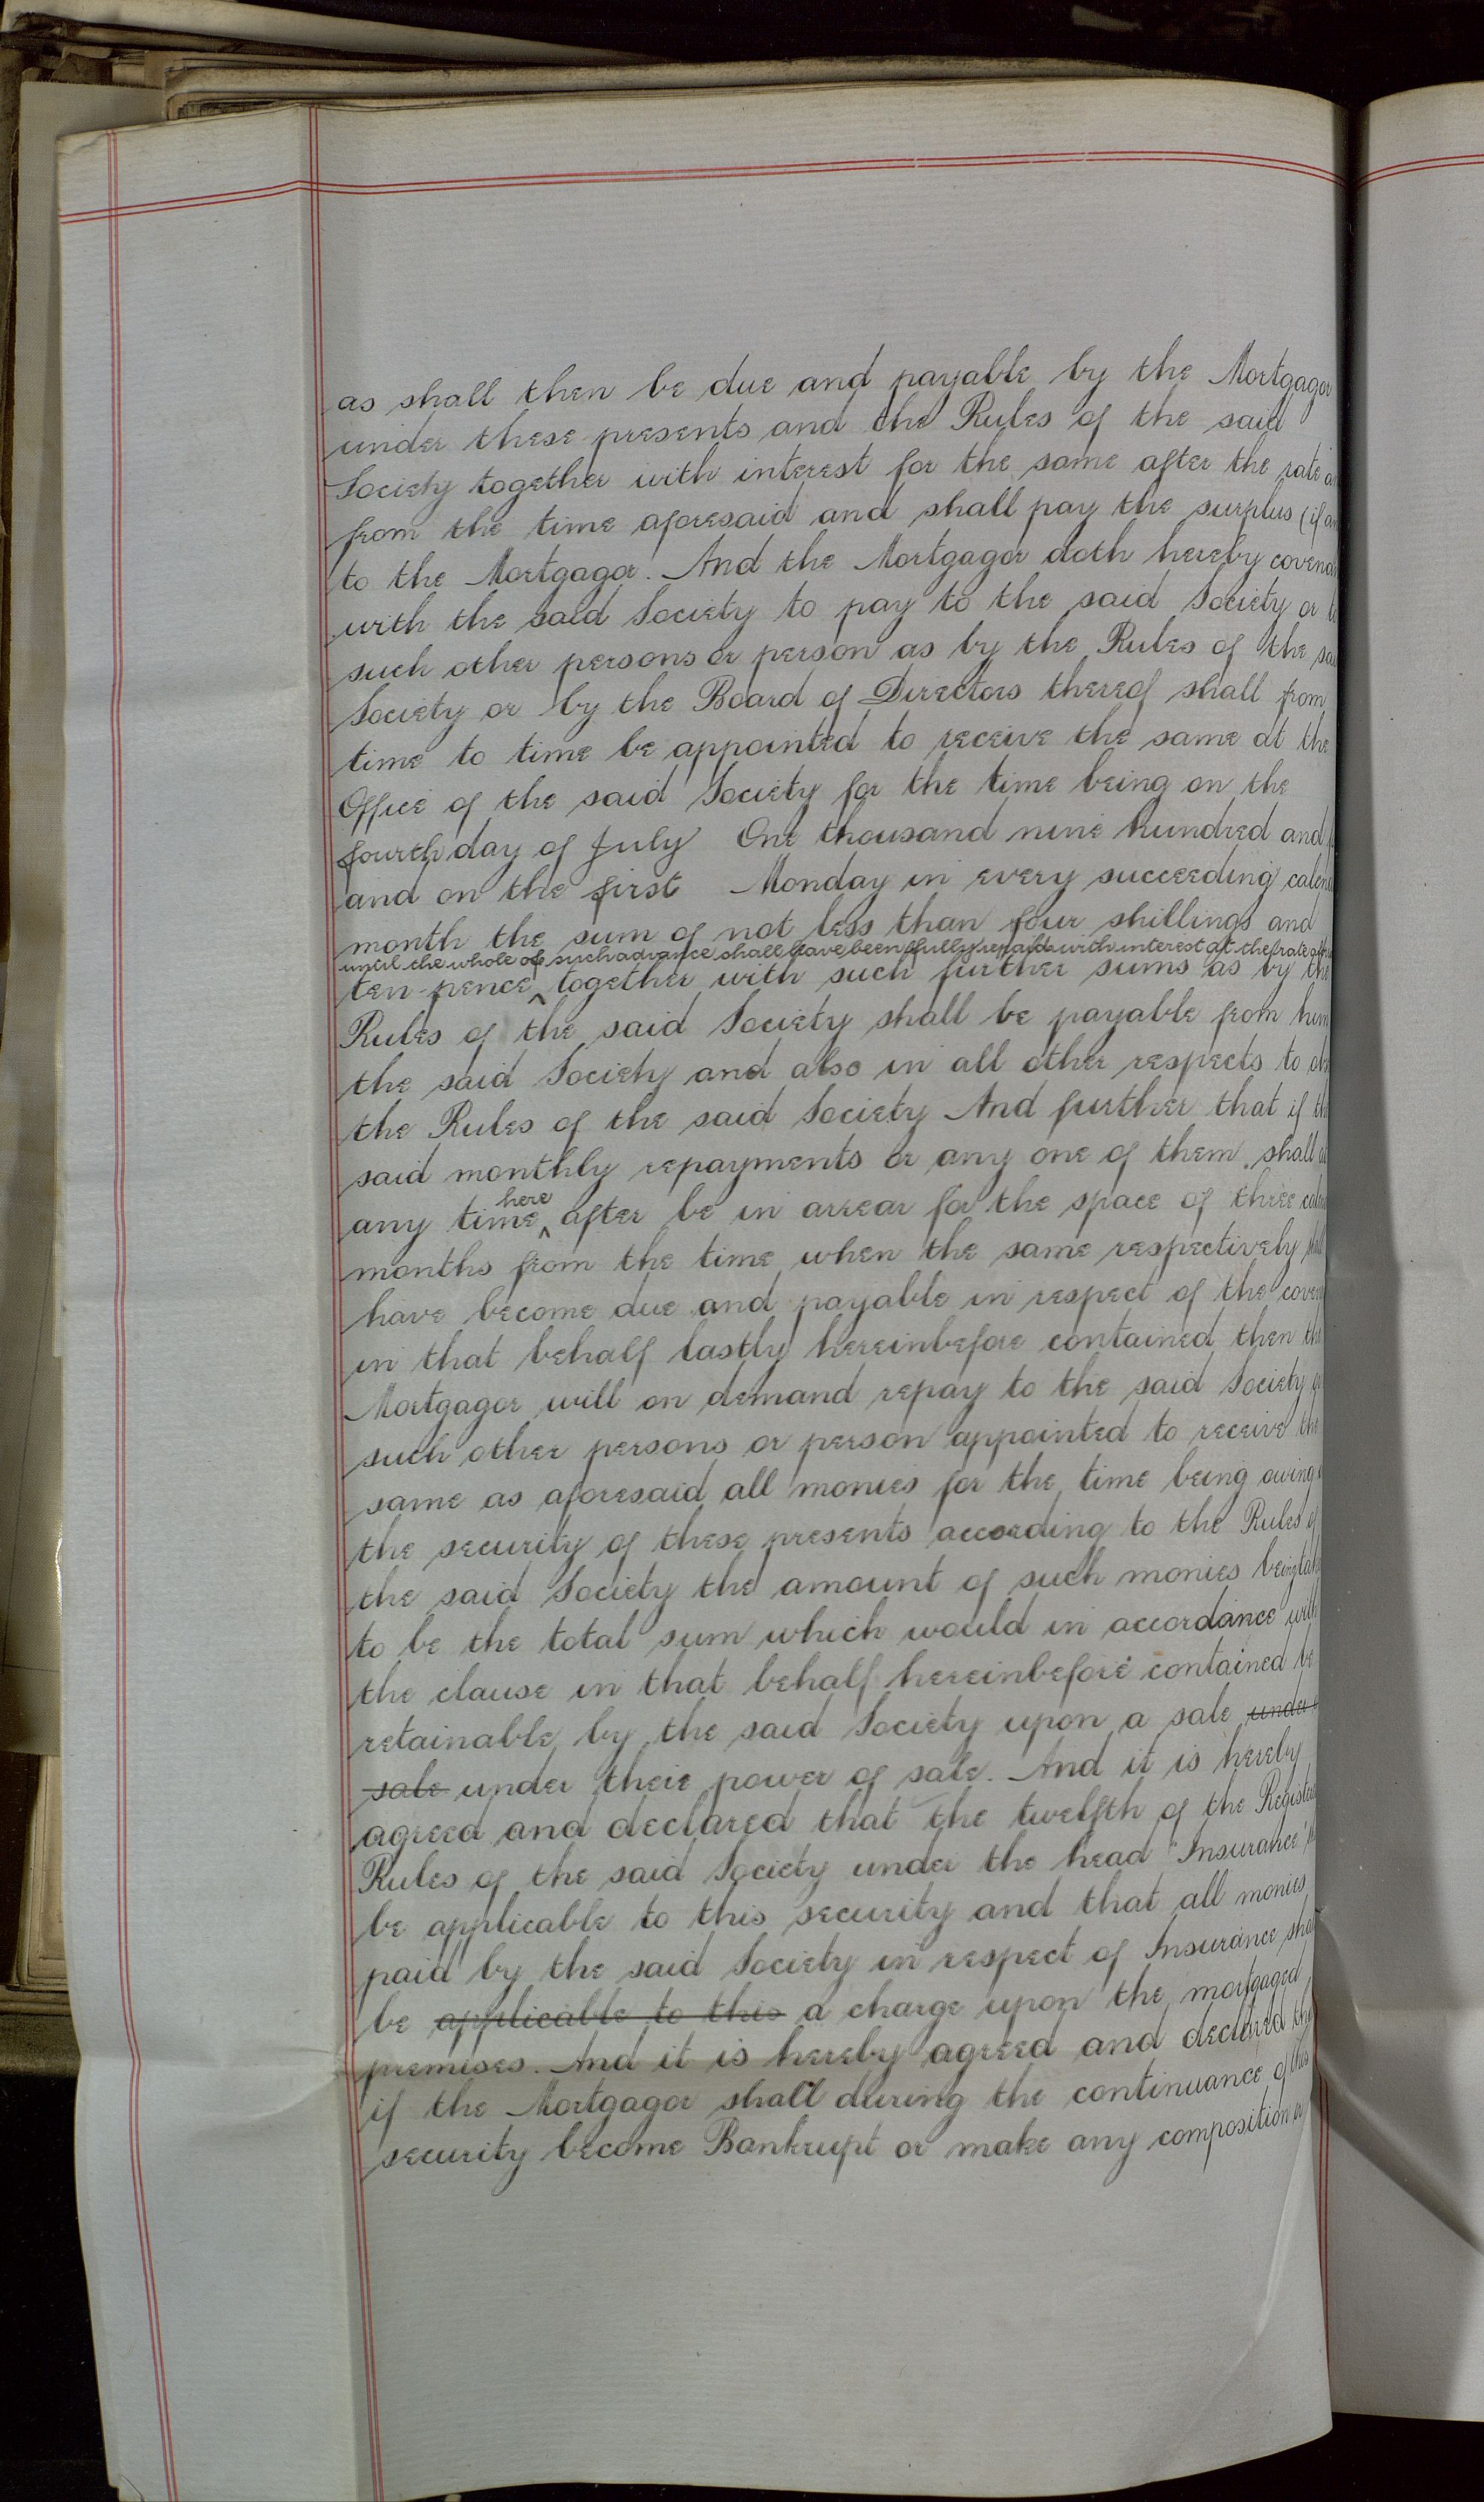 as shall then be due and payable by the Mortgagor
under these presents and the Rules of the said
Society together with interest for the same after the rate
from the time aforesaid and shall pay the surplus (if
to the Mortgagor. And the Mortgagor doth hereby
with the said Society to pay to the said Society or
such other persons or person as by the Rules of the
Society or by the Board of Directors thereof shall from
time to time be appointed to receive the same at the
Office of the said Society for the time being on the
fourth day of July One thousand nine hundred and
and on the first Monday in every succeeding
month the sum of not less than four shillings and
until the whole of such advance shall have been fully repaid with interest at the rate
ten-pence ^ together with such further sums as by the
Rules of the said Society shall be payable from him
the said Society and also in all other respects to
the Rules of the said Society And further that if
said monthly repayments or any one of them shall
here
any time ^ after be in arrear for the space of three
months from the time when the same respectively
have become due and payable in respect of the
in that behalf lastly hereinbefore contained then
Mortgagor will on demand repay to the said Society
such other persons or person appointed to receive the
same as aforesaid all monies for the time being owing
the security of these presents according to the Rules
the said Society the amount of such monies being
to be the total sum which would in accordance with
the clause in that behalf hereinbefore contained be
retainable by the said Society upon a sale under
sale under their power of sale. And it is hereby
agreed and declared that the twelfth of the
Rules of the said Society under the head "Insurance"
be applicable to this security and that all monies
paid by the said Society in respect of Insurance
be applicable to this a charge upon the mortgaged
premises. And it is hereby agreed and declared
if the Mortgagor shall during the continuance of this
security become Bankrupt or make any composition